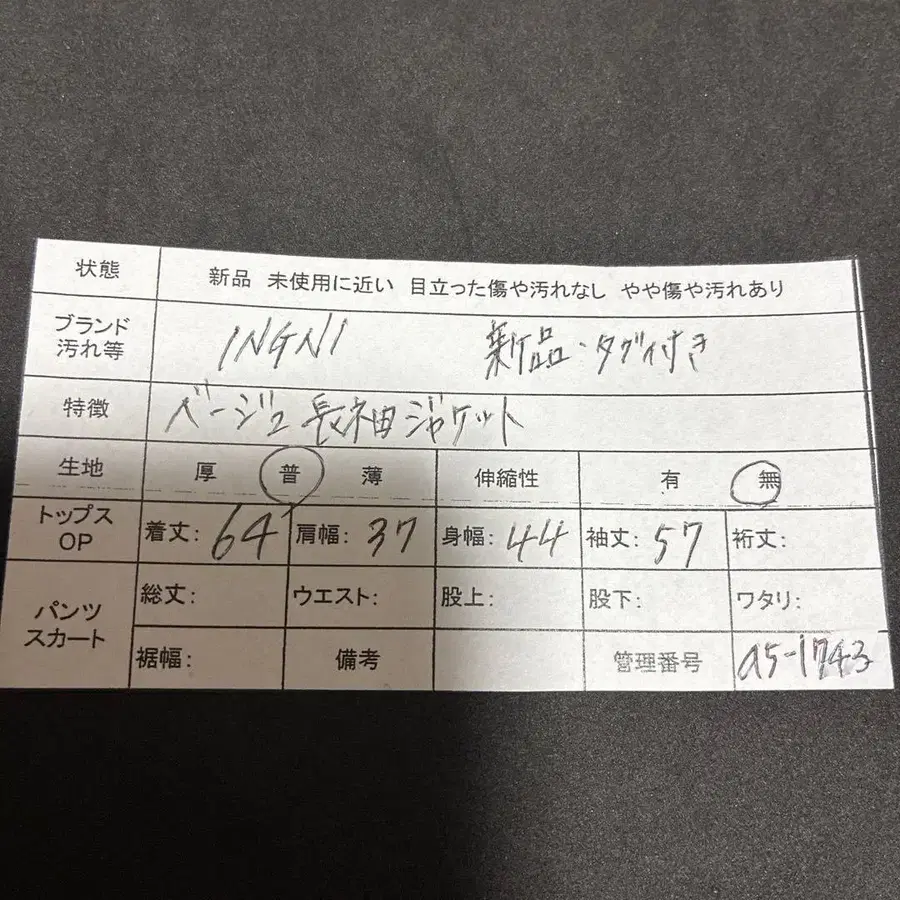 状態 新品 未使用に近い 目立った傷や汚れなし やや傷や汚れあり
ブランド
汚れ等 INGNI 新品・タグ付き
特徴 ベージュ長袖ジャケット
生地 厚 普 薄 伸縮性 有 無
トップス
OP 着丈:64 肩幅:37 身幅:44 袖丈:57 裄丈:
パンツ
スカート 総丈: ウエスト: 股上: 股下: ワタリ:
裾幅: 備考 管理番号 a5-1743